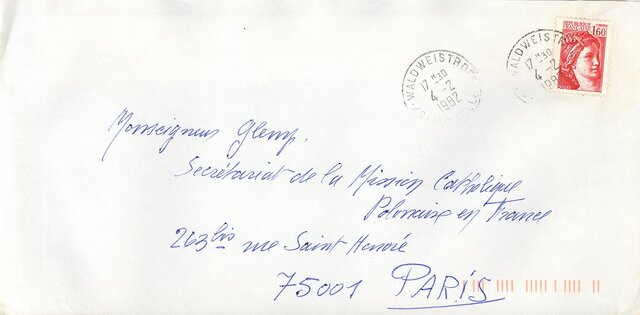 RÉPUBLIQUE FRANÇAISE
1,60
WALDWEISTROFF
17 H30
4-2
1982
WALDWEISTROFF
17 H30
4-2
1982
Monseigneur Glemp.
Secrétariat de la Mission Catholique
Polonaise en France
263 bis rue Saint Honoré
75001 PARIS